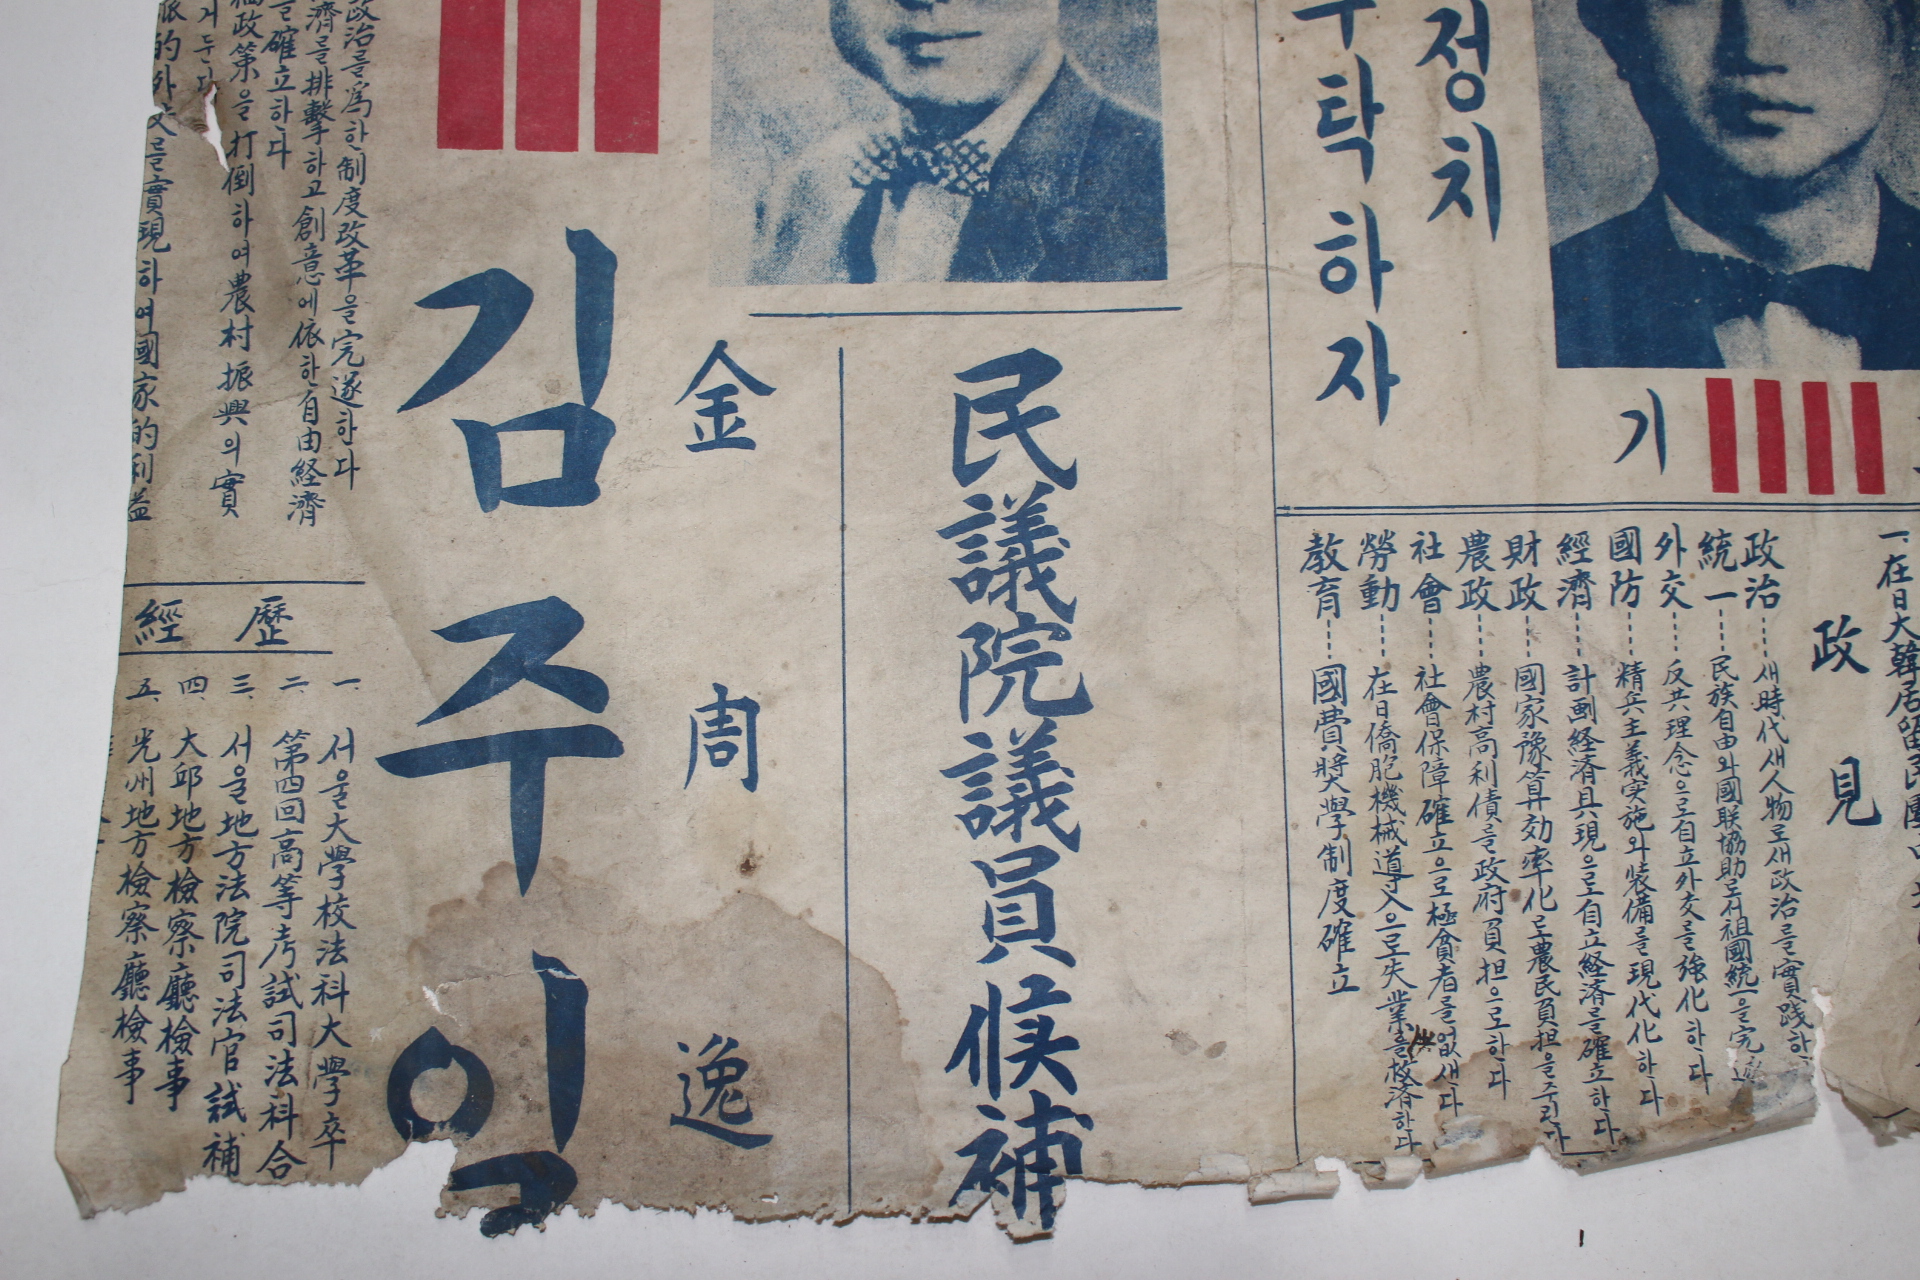 정치
부탁하자
기
一、在日大韓居留民團中央
政見
政治……새時代새人物로새政治를實踐하
統一……民族自由와國联協助로서祖國統一을完遂
外交……反共理念으로自立外交를強化하다
國防……精兵主義実施와装備를現代化하다
經濟……計劃経済具現으로自立経済를確立하다
財政……國家豫算効率化로農民負担을주린다
農政……農村高利債를政府負担으로하다
社會……社會保障確立으로極貧者를없새다
勞動……在日僑胞機械導入으로失業을救済하다
教育……國費奬學制度確立
民議院議員候補
金周逸
김주일
政治를爲한制度改革을完遂하다
濟를排擊하고創意에依한自由経濟
를確立하다
政策을打倒하여農村振興의實
거둔다
的外交를實現하여國家的利益
經歷
一、서울大學校法科大學卒
二、第四回高等考試司法科合
三、서울地方法院司法官試補
四、大邱地方檢察廳檢事
五、光州地方檢察廳檢事